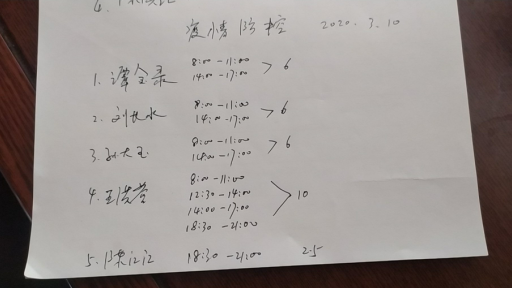 4.
疫情防控 2020.3.10
1. 谭全录 8:00-11:00
14:00-17:00 > 6
2. 刘长水 8:00-11:00
14:00-17:00 > 6
3. 孙大玉 8:00-11:00
14:00-17:00 > 6
4. 王 8:00-11:00
12:30-14:00
14:00-17:00 > 10
18:30-21:00
5. 陈江江 18:30-21:00 2.5